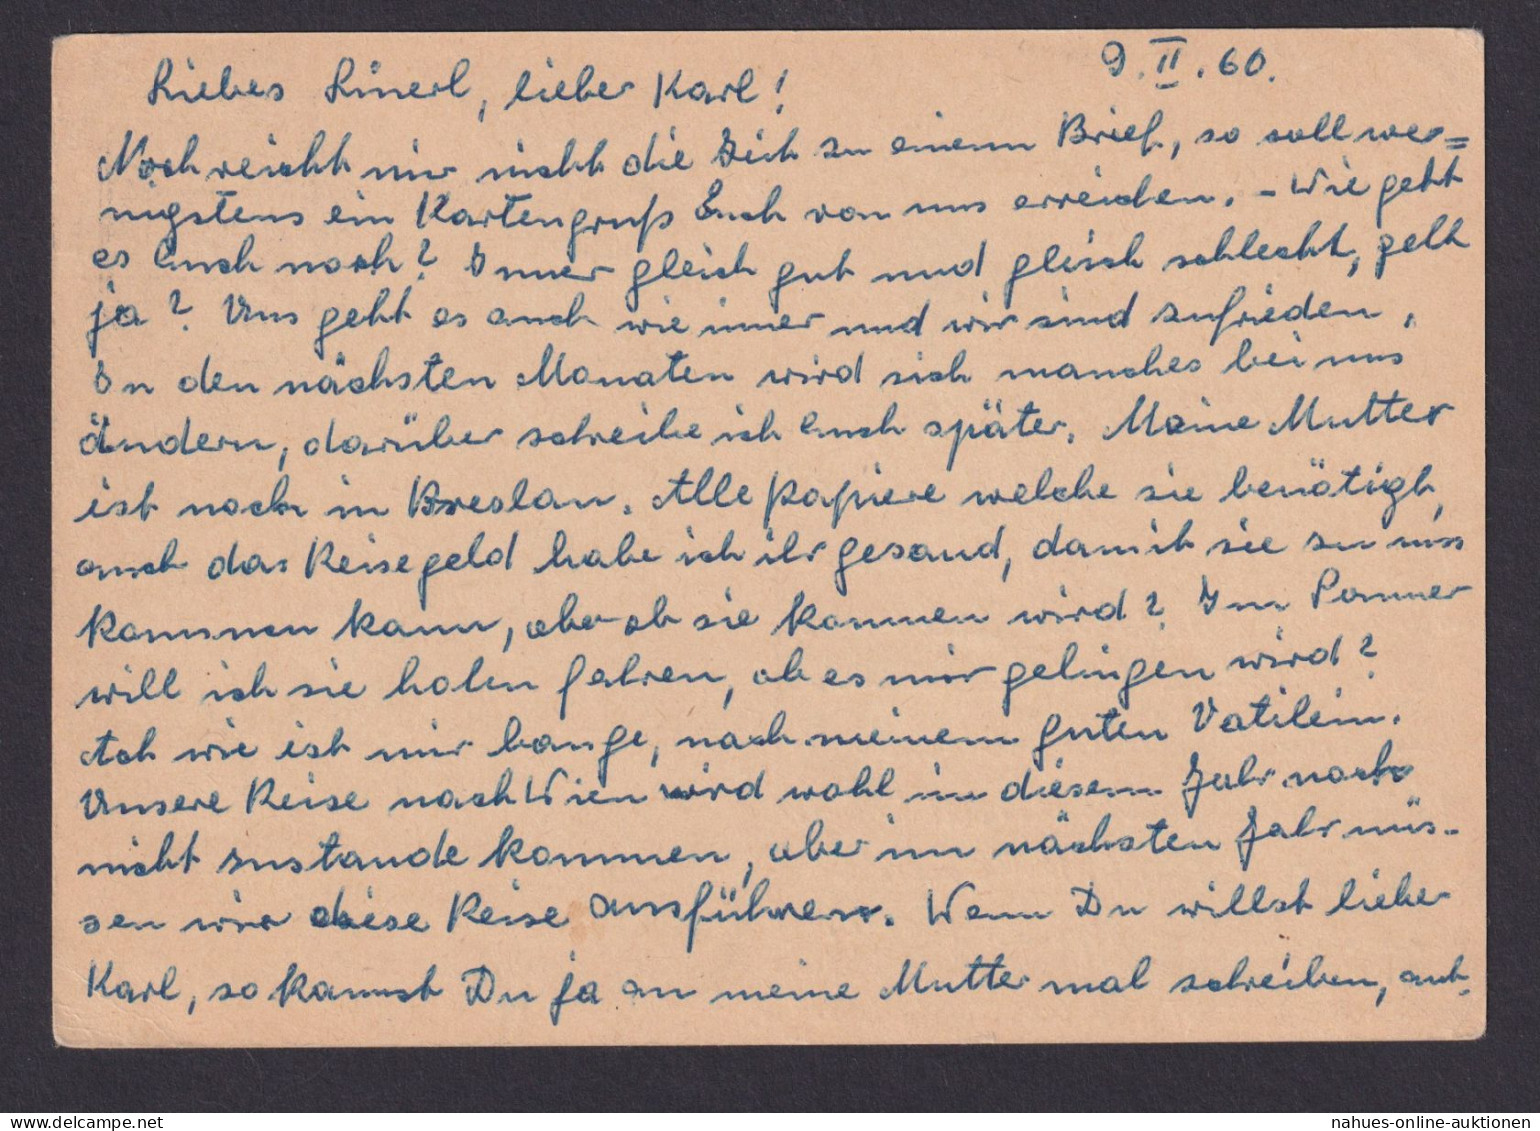 9. II. 60.
Liebes Linerl, lieber Karl!
Noch reicht mir nicht die Zeit zu einem Brief, so soll we=
nigstens ein Kartengruß Euch von uns erreichen. - Wie geht
es Euch noch? Immer gleich gut und gleich schlecht, gelt
ja? Uns geht es auch wie immer und wir sind zufrieden.
In den nächsten Monaten wird sich manches bei uns
ändern, darüber schreibe ich Euch später. Meine Mutter
ist noch in Breslau. Alle Papiere welche sie benötigt,
auch das Reisegeld habe ich ihr gesand, damit sie zu uns
kommen kann, aber ob sie kommen wird? Im Sommer
will ich sie holen fahren, ob es mir gelingen wird?
Ach wie ist mir bange, nach meinem guten Vatilein.
Unsere Reise nach Wien wird wohl in diesem Jahr noch
nicht zustande kommen, aber im nächsten Jahr müs-
sen wir diese Reise ausführen. Wenn Du willst lieber
Karl, so kannst Du ja an meine Mutter mal schreiben, ant-
nahues-online-auktionen